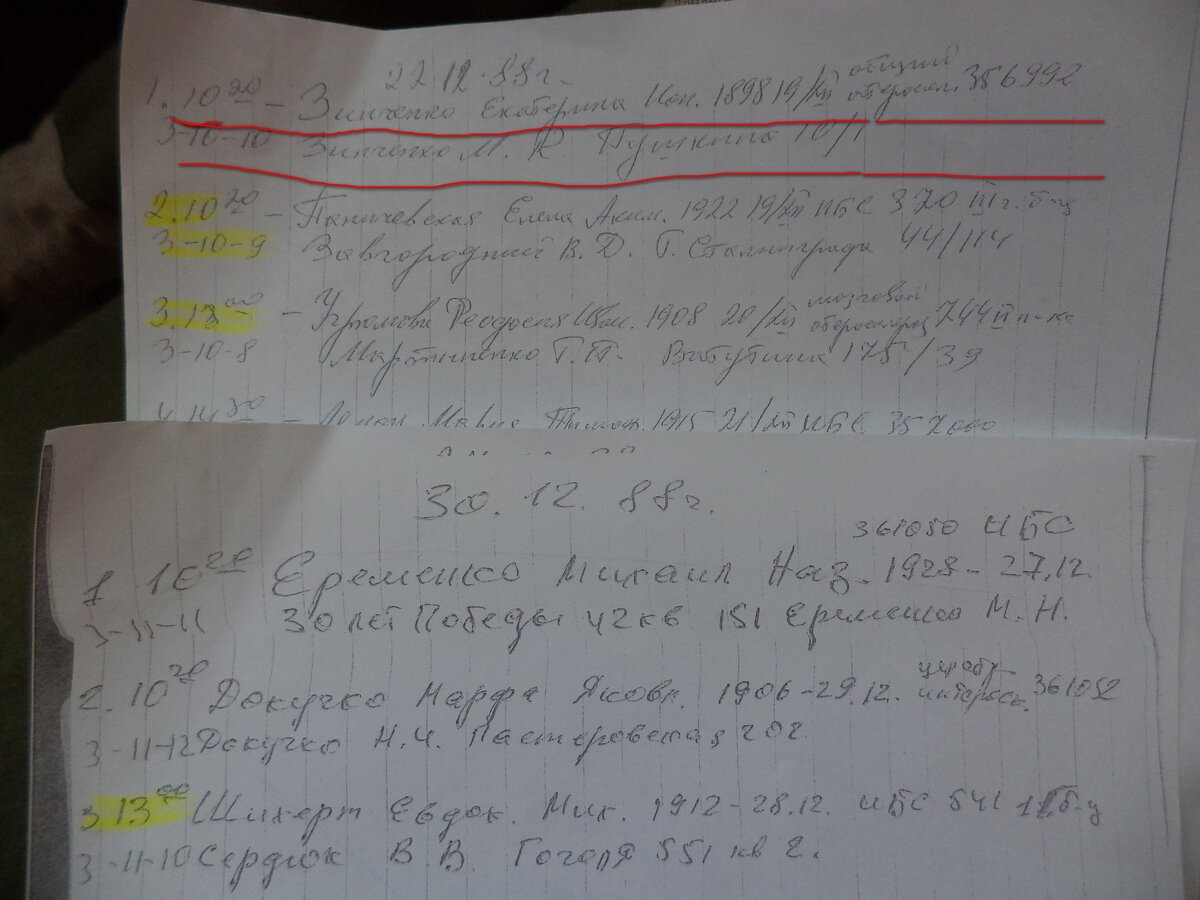 22.12.88г.
1. 10 20 – Зинченко Екатерина Кон. 1898 19/XII общий атероскл. 356992
3-10-10 Зинченко М. К. Пушкина 10/1
2. 10 20 – Паничевская Елена Аким. 1922 19/XII ИБС 370 III г. б-ца
3-10-9 Завгородний В. Д. Г. Сталинграда 44/114
3. 13 00 – Угрюмова Феодосия 1908 20/XII мозговой 744 II
3-10-8 Мартыненко Г. П. Ватутина 175/39
4. 14 20 – Мария Тимоф. 1915 21/XII ИБС 357000
30. 12. 88г.
361050 ИБС
1 10 20 Еременко Михаил Наз. 1928 – 27.12.
3-11-11 30 лет Победы 42 кв 151 Еременко М. Н.
2. 10 20 Докучко Марфа Яковл. 1906 – 29.12. 361052
3-11-12 Докучко Н. И. Пастеровская 202
3 13 00 Шихерт Евдок. Мих. 1912 – 28.12. ИБС 541 б-ц
3-11-10 Сердюк В. В. Гоголя 551 кв 2.